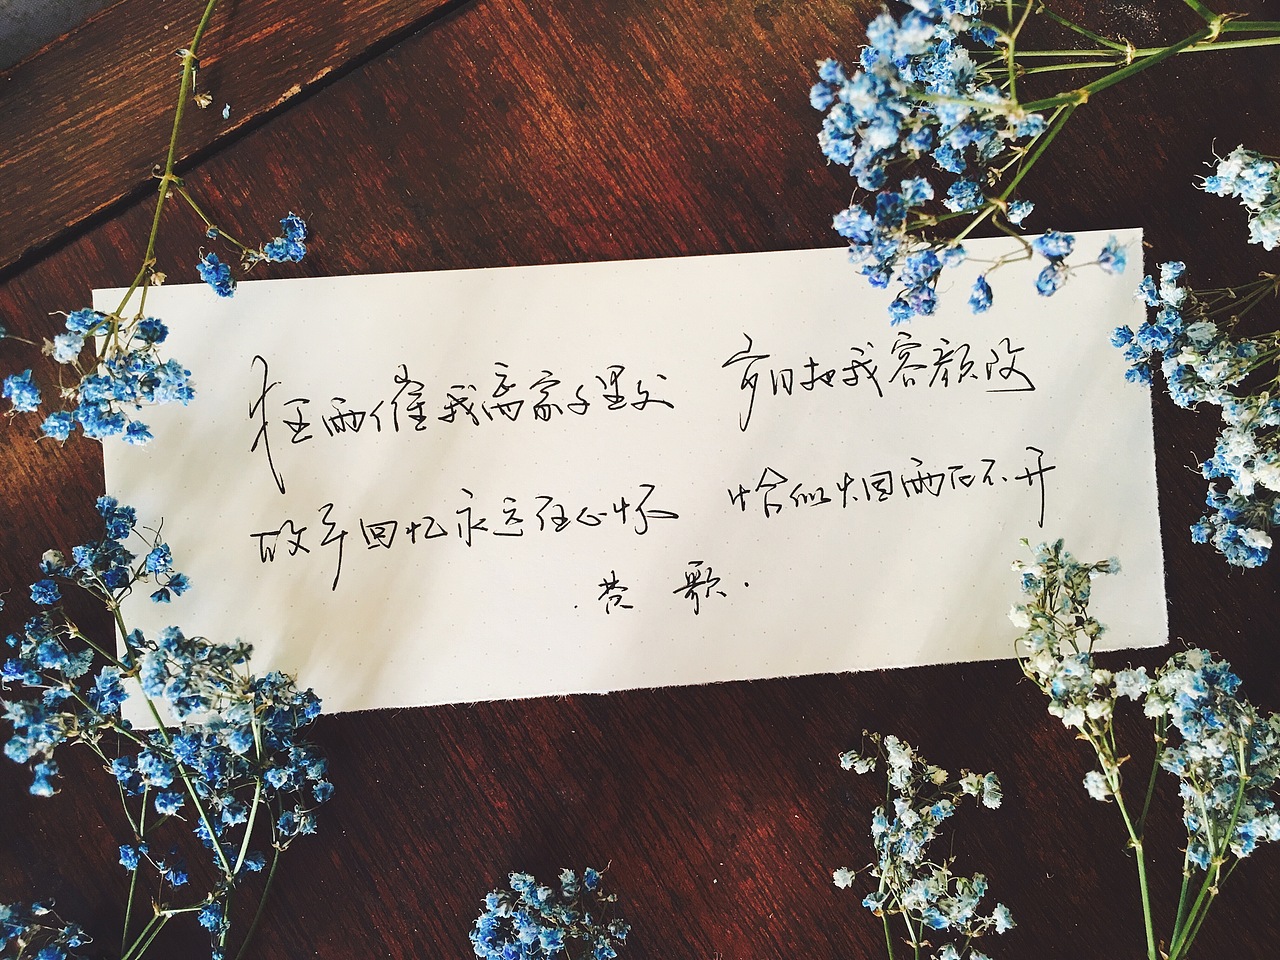 狂雨催我离家千里外 岁月把我容颜改
故乡回忆永远在心怀 恰似烟雨化不开
歌